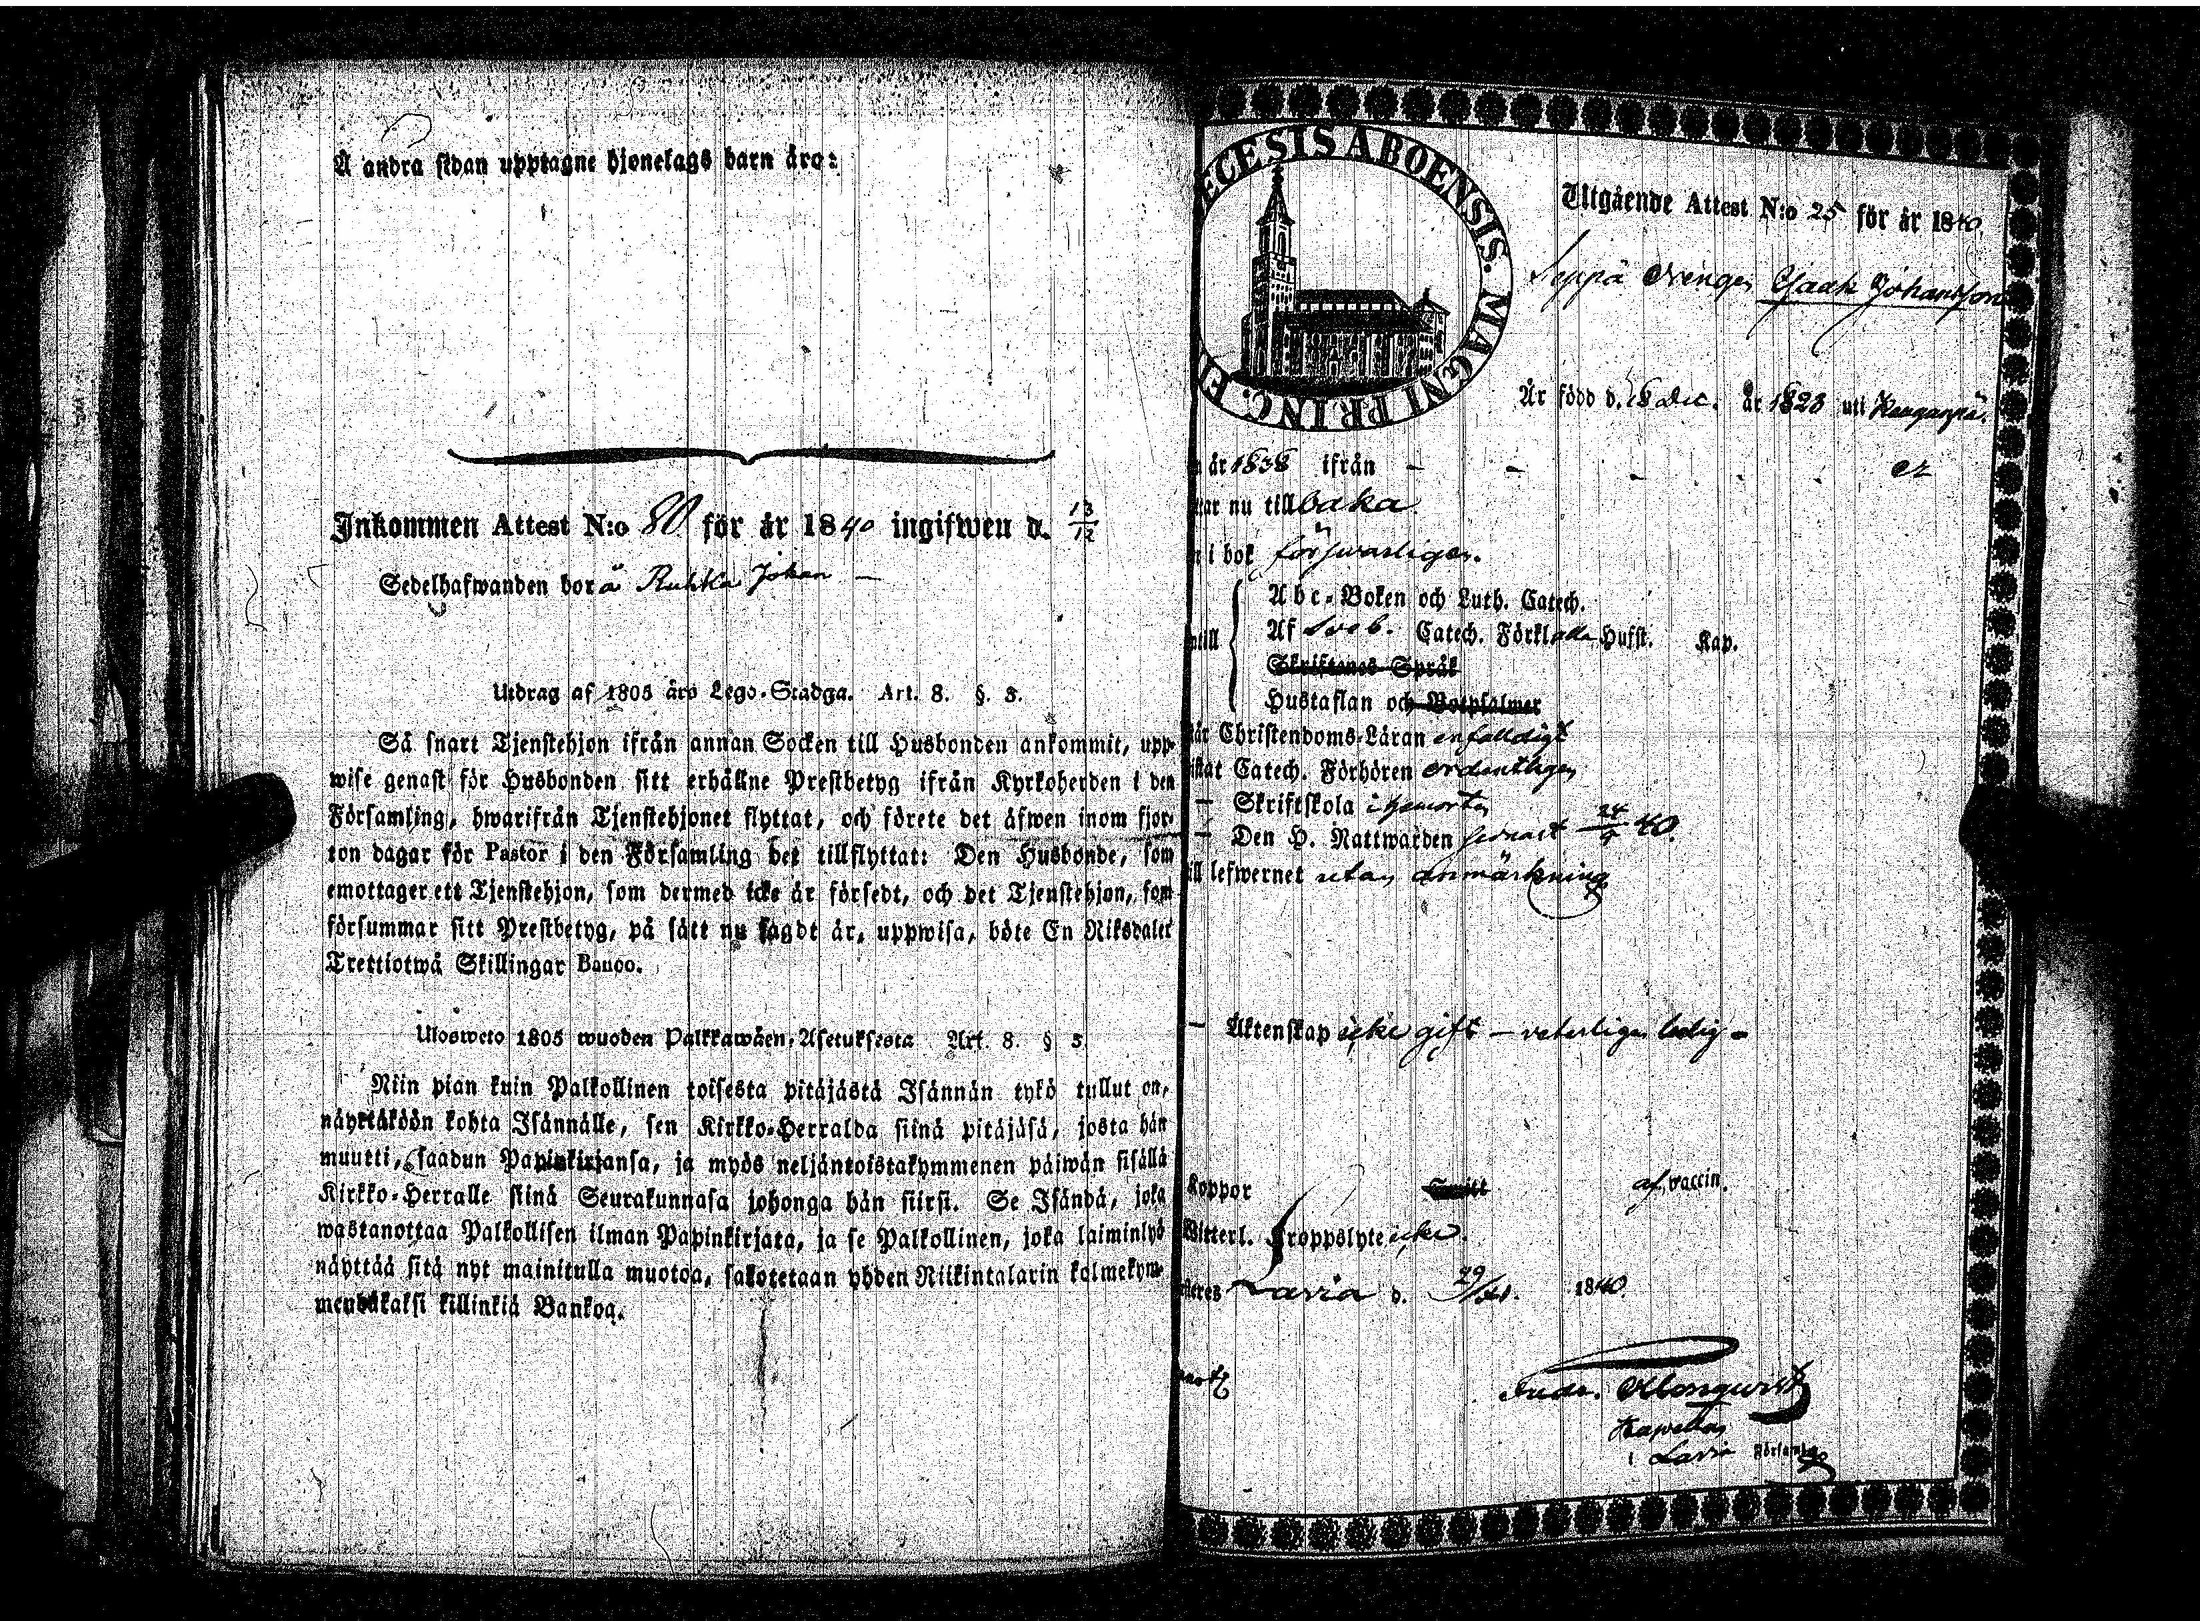 Å andra sidan upptagne hjonelags barn äro:
Inkommen Attest N:o 80 för år 1840 ingifwen d. 13/12
Sedelhafwanden bor å Ruhka Johan —
Utdrag af 1805 års Lego-Stadga. Art. 8. §. 3.
Så snart Tjenstehjon ifrån annan Socken till Husbonden ankommit, upp-
wise genast för Husbonden sitt erhållne Prestbetyg ifrån Kyrkoherden i den
Församling, hwarifrån Tjenstehjonet flyttat, och förete det äfwen inom fjor-
ton dagar för Pastor i den Församling det tillflyttat: Den Husbonde, som
emottager ett Tjenstehjon, som dermed icke är försedt, och det Tjenstehjon, som
försummar sitt Prestbetyg, på sätt nu sagdt är, uppwisa, böte En Riksdaler
Trettiotwå Skillingar Banco.
Ulosweto 1805 wuoden Palkkawäen-Asetuksesta Art. 8. § 3
Niin pian kuin Palkollinen toisesta pitäjästä Isännän tykö tullut on,
näyttäköön kohta Isännälle, sen Kirkko-Herralda siinä pitäjäsä, josta hän
muutti, saadun Papinkirjansa, ja myös neljäntoistakymmenen päiwän sisällä
Kirkko-Herralle siinä Seurakunnasa johonga hän siirsi. Se Isändä, joka
wastanottaa Palkollisen ilman Papinkirjata, ja se Palkollinen, joka laiminlyö
näyttää sitä nyt mainitulla muotoa, sakotetaan yhden Riikintalarin kolmekym-
mendäkaksi killinkiä Bankoa.
ECESIS ABOENSIS. MAGNI PRINC. FI
Utgående Attest N:o 25 för år 1840
Seppä Drengen Isaak Johansson
Är född d. 18 Dec. år 1823 uti Kangaspä.
år 1838 ifrån — — — —
tar nu tillbaka
i bok försvarligen.
Abc-Boken och Luth. Catech.
ntill Af Sveb. Catech. Förkl alla Hufst. Kap.
Skriftenes Språk
Hustaflan och Botpsalmer
tår Christendoms-Läran enfaldigt
istat Catech. Förhören ordentligen
— Skriftskola i hemorten
— Den H. Nattwarden senast 24/9 40.
ill lefwernet utan anmärkning
— Äktenskap icke gift — veterligen ledig —
Koppor af vaccin.
Witterl. Kroppslyte icke.
teres Lavia d. 29/11. 1840.
Fredr. Blomqwist
Kapellan
i Lavia Församling